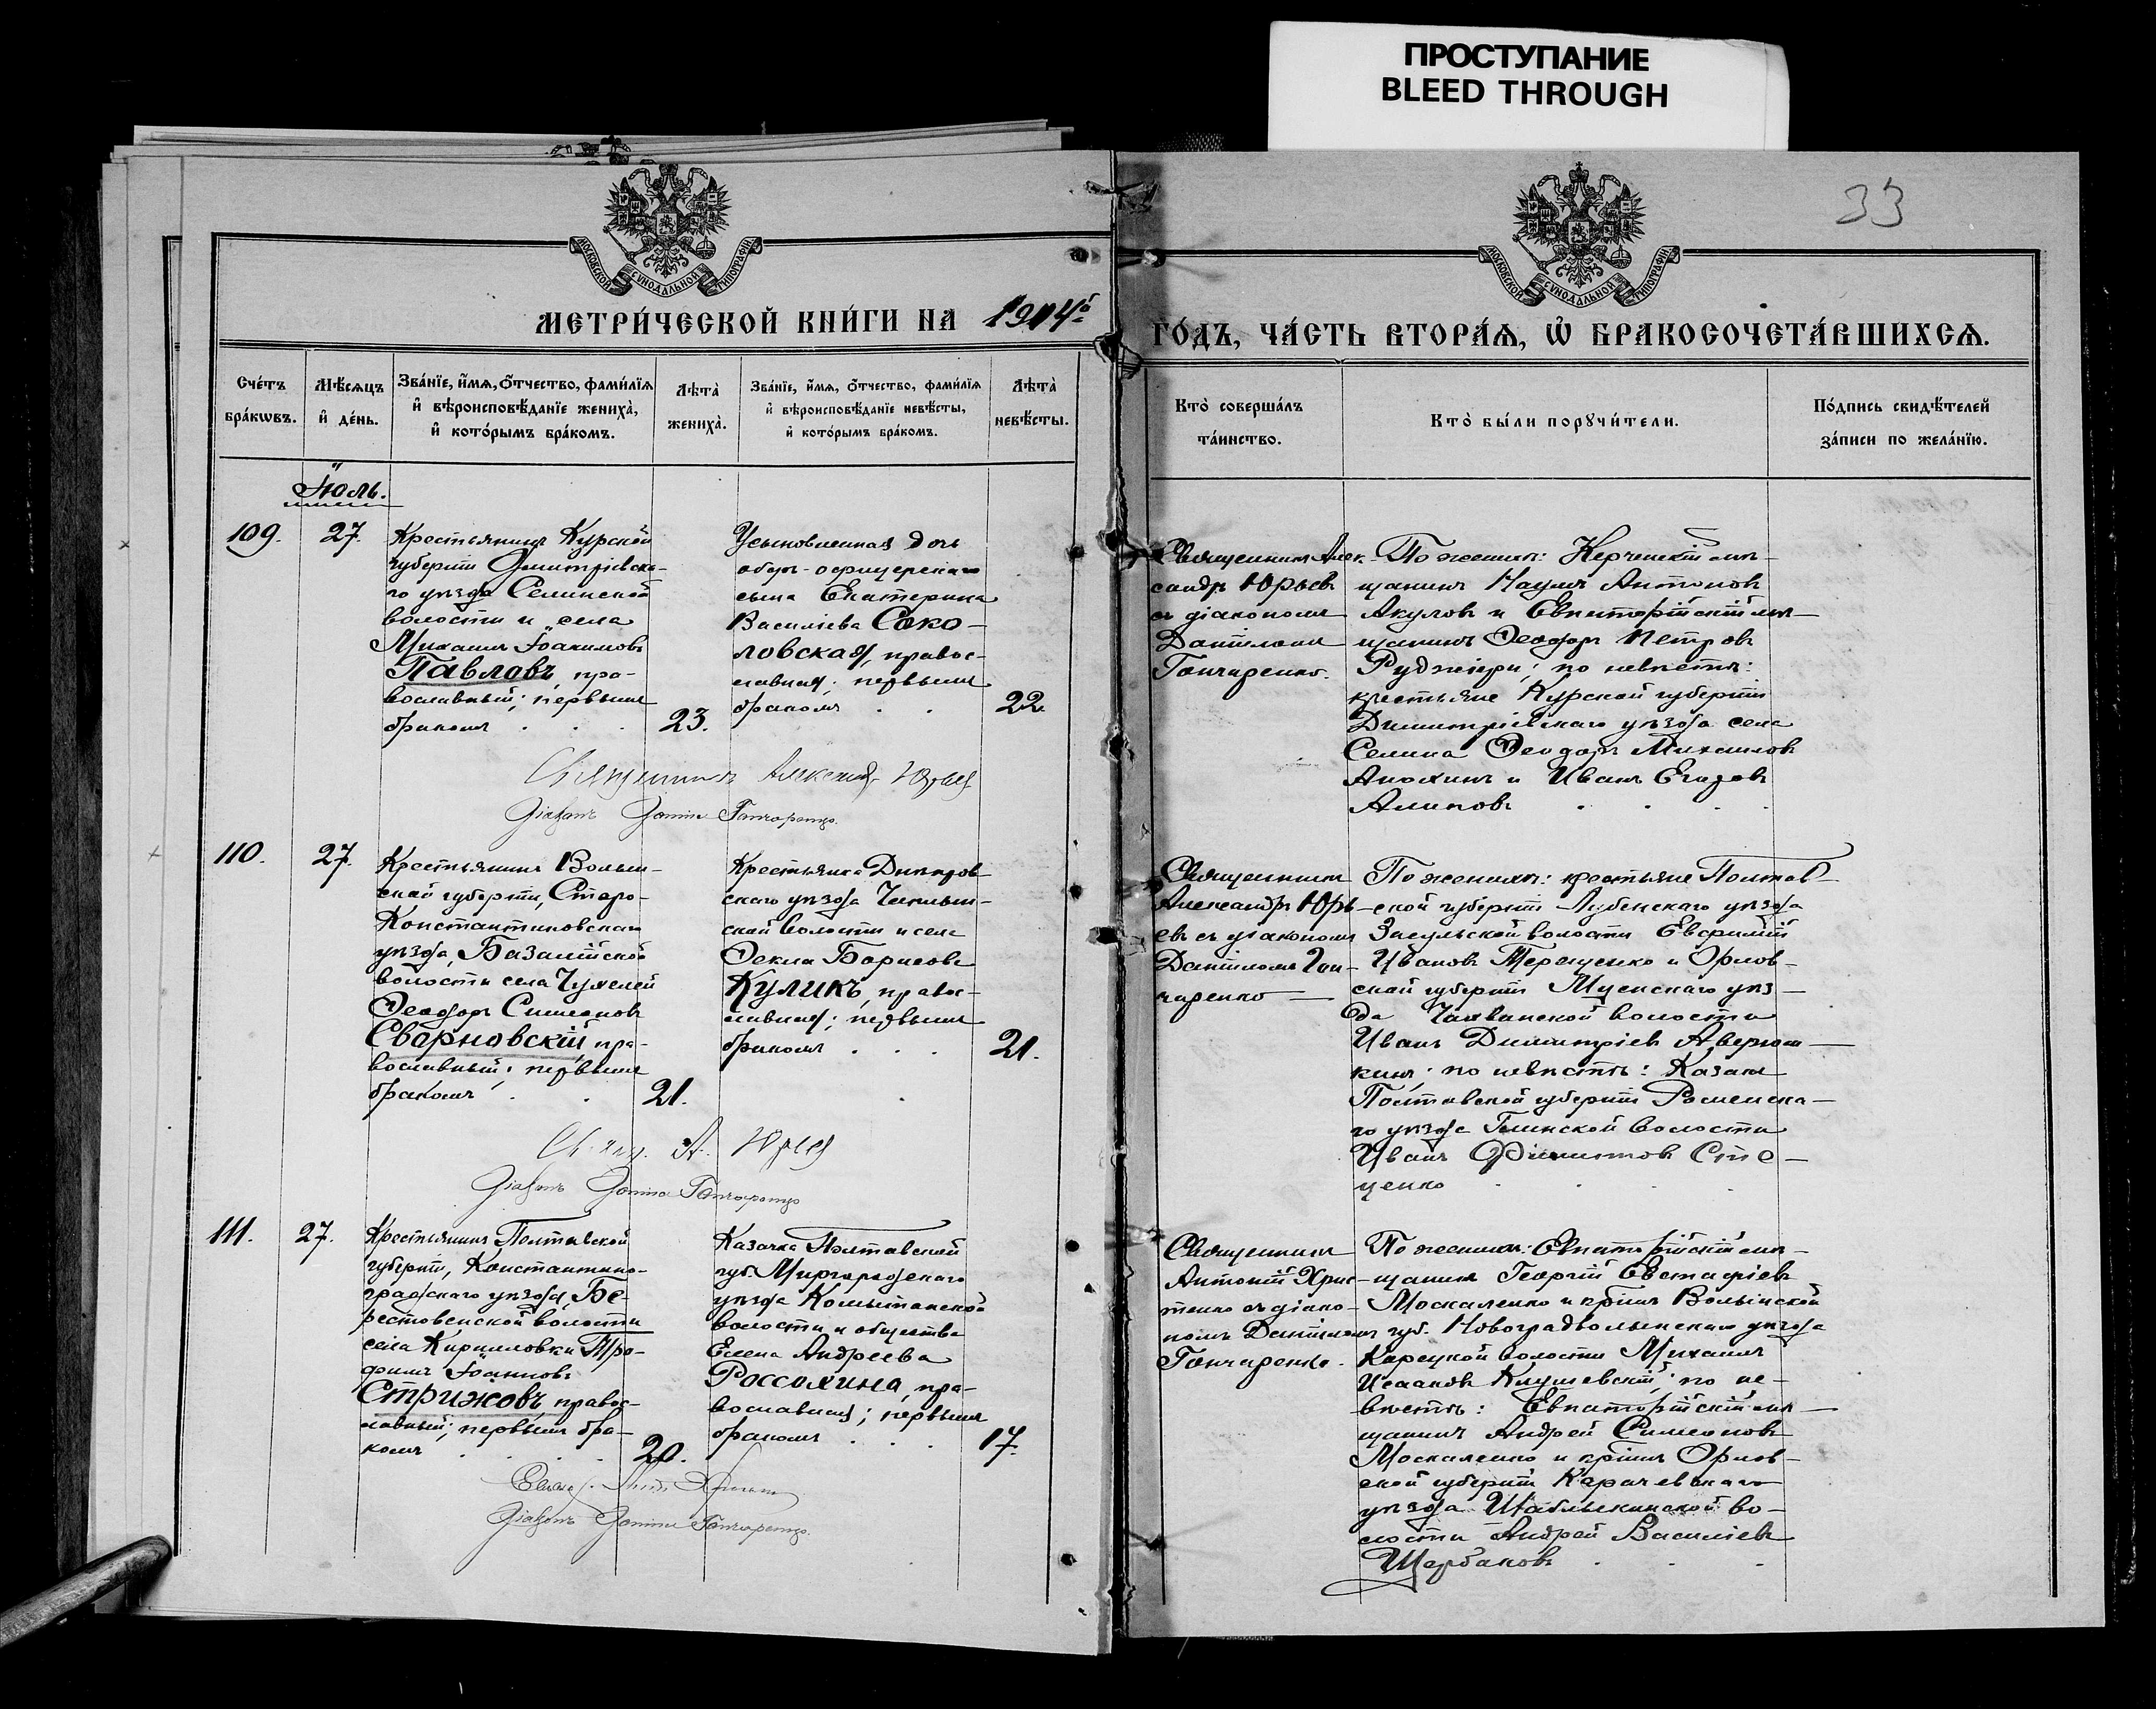 ПРОСТУПАНИЕ
BLEED THROUGH
33
МОСКОВСКОЙ СѴНОДАЛЬНОЙ ТИПОГРАФІИ
МОСКОВСКОЙ СѴНОДАЛЬНОЙ ТИПОГРАФІИ
МЕТРИ́ЧЕСКОЙ КНИ́ГИ НА 1914й
ГО́ДЪ, ЧА́СТЬ ВТОРА́Ѧ, Ѽ БРАКОСОЧЕТА́ВШИХСѦ.
Сче́тъ бра́кѡвъ.
Мѣ́сяцъ и҆ де́нь.
Зва́нїе, и҆́мѧ, ѻ҆́тчество, фами́лїѧ и҆ вѣроисповѣ́данїе жениха̀, и҆ кото́рымъ бра́комъ.
Лѣта̀ жениха̀.
Зва́нїе, и҆́мѧ, ѻ҆́тчество, фами́лїѧ и҆ вѣроисповѣ́данїе невѣ́сты, и҆ кото́рымъ бра́комъ.
Лѣта̀ невѣ́сты.
Кто̀ соверша́лъ та́инство.
Кто̀ бы́ли порꙋчи́тели.
По́дпись свидѣ́телей за́писи по жела́нїю.
Іюль.
109.
27.
Крестьянинъ Курской
губерніи Дмитріевска-
го уѣзда Селинской
волости и села
Михаилъ Іоакимовъ
Павловъ, пра-
вославный; первымъ
бракомъ . . .
23.
Усыновленная дочь
оберъ-офицерскаго
сына Екатерина
Василіева Соко-
ловская, правос-
лавная; первымъ
бракомъ . .
22.
Священникъ Алек-
сандръ Юрьевъ
съ діакономъ
Даніиломъ
Гончаренко.
По женихѣ: Керченскій мѣ-
щанинъ Наумъ Антоновъ
Акуловъ и Евпаторійскій мѣ-
щанинъ Ѳеодоръ Петровъ
Руджіери; по невѣстѣ:
крестьяне Курской губерніи
Димитріевскаго уѣзда села
Селина Ѳеодоръ Михаиловъ
Анохинъ и Иванъ Егоровъ
Алиповъ . . . .
Священникъ Александръ Юрьевъ
Діаконъ Даніилъ Гончаренко.
110.
27.
Крестьянинъ Волын-
ской губерніи, Старо-
Константиновскаго
уѣзда, Базалійской
волости села Чухелей
Ѳеодоръ Симеоновъ
Сварновскій, пра-
вославный; первымъ
бракомъ . .
21.
Крестьянка Днѣпров-
скаго уѣзда
ской волости и села
Ѳекла Борисова
Куликъ, правос-
лавная; первымъ
бракомъ . . .
21.
Священникъ
Александръ Юрь-
евъ съ діакономъ
Даніиломъ Гон-
чаренко
По женихѣ: крестьяне Полтав-
ской губерніи Лубенскаго уѣзда
Засульской волости Евфимій
Ивановъ Терещенко и Орлов-
ской губерніи Мценскаго уѣз-
да волости
Иванъ Димитріевъ Аверюш-
кинъ; по невѣстѣ: Казакъ
Полтавской губерніи Роменска-
го уѣзда Глинской волости
Иванъ Сте-
ценко . . .
Свящ. А. Юрьев
Діаконъ Даніилъ Гончаренко
111.
27.
Крестьянинъ Полтавской
губерніи, Константино-
градскаго уѣзда, Бе-
рестовенской волости
села Кирилловки Тро-
фимъ Іоанновъ
Стрижовъ, правос-
лавный; первымъ бра-
комъ . . . .
20.
Казачка Полтавской
губ. Миргородскаго
уѣзда Комышанской
волости и общества
Елена Андреева
Россохина, пра-
вославная; первымъ
бракомъ . . .
17.
Священникъ
Антоній Хрис-
тенко съ діако-
номъ Даніиломъ
Гончаренко.
По женихѣ: Евпаторійскій мѣ-
щанинъ Георгій Евстафіевъ
Москаленко и кр-инъ Волынской
губ. Новоградволынскаго уѣзда
Корецкой волости Михаилъ
Исааковъ по не-
вѣстѣ: Евпаторійскій мѣ-
щанинъ Андрей Симеоновъ
Москаленко и кр-инъ Орлов-
ской губерніи Карачевскаго
уѣзда Шаблыкинской во-
лости Андрей Василіевъ
Щербаковъ . . .
Діаконъ Даніилъ Гончаренко.